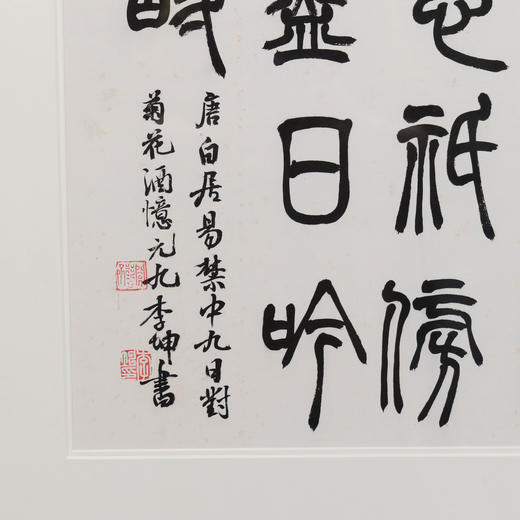 祇傍
盡日吟
唐白居易禁中九日對
菊花酒憶元九李坤書